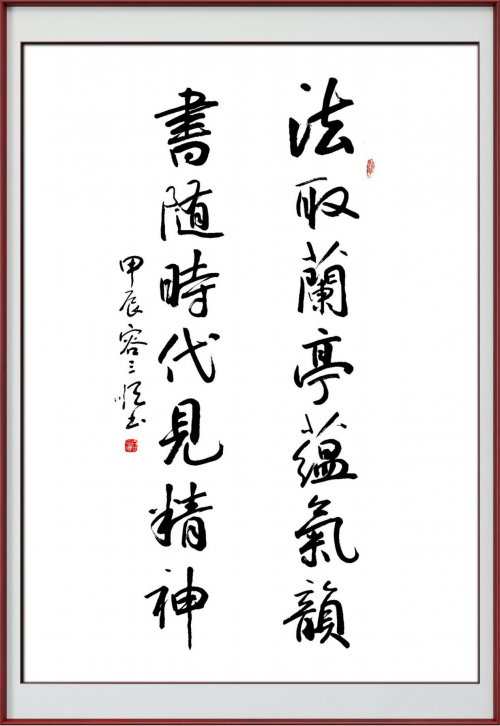 法取蘭亭蕴氣韻
書随時代見精神
甲辰容三恒书